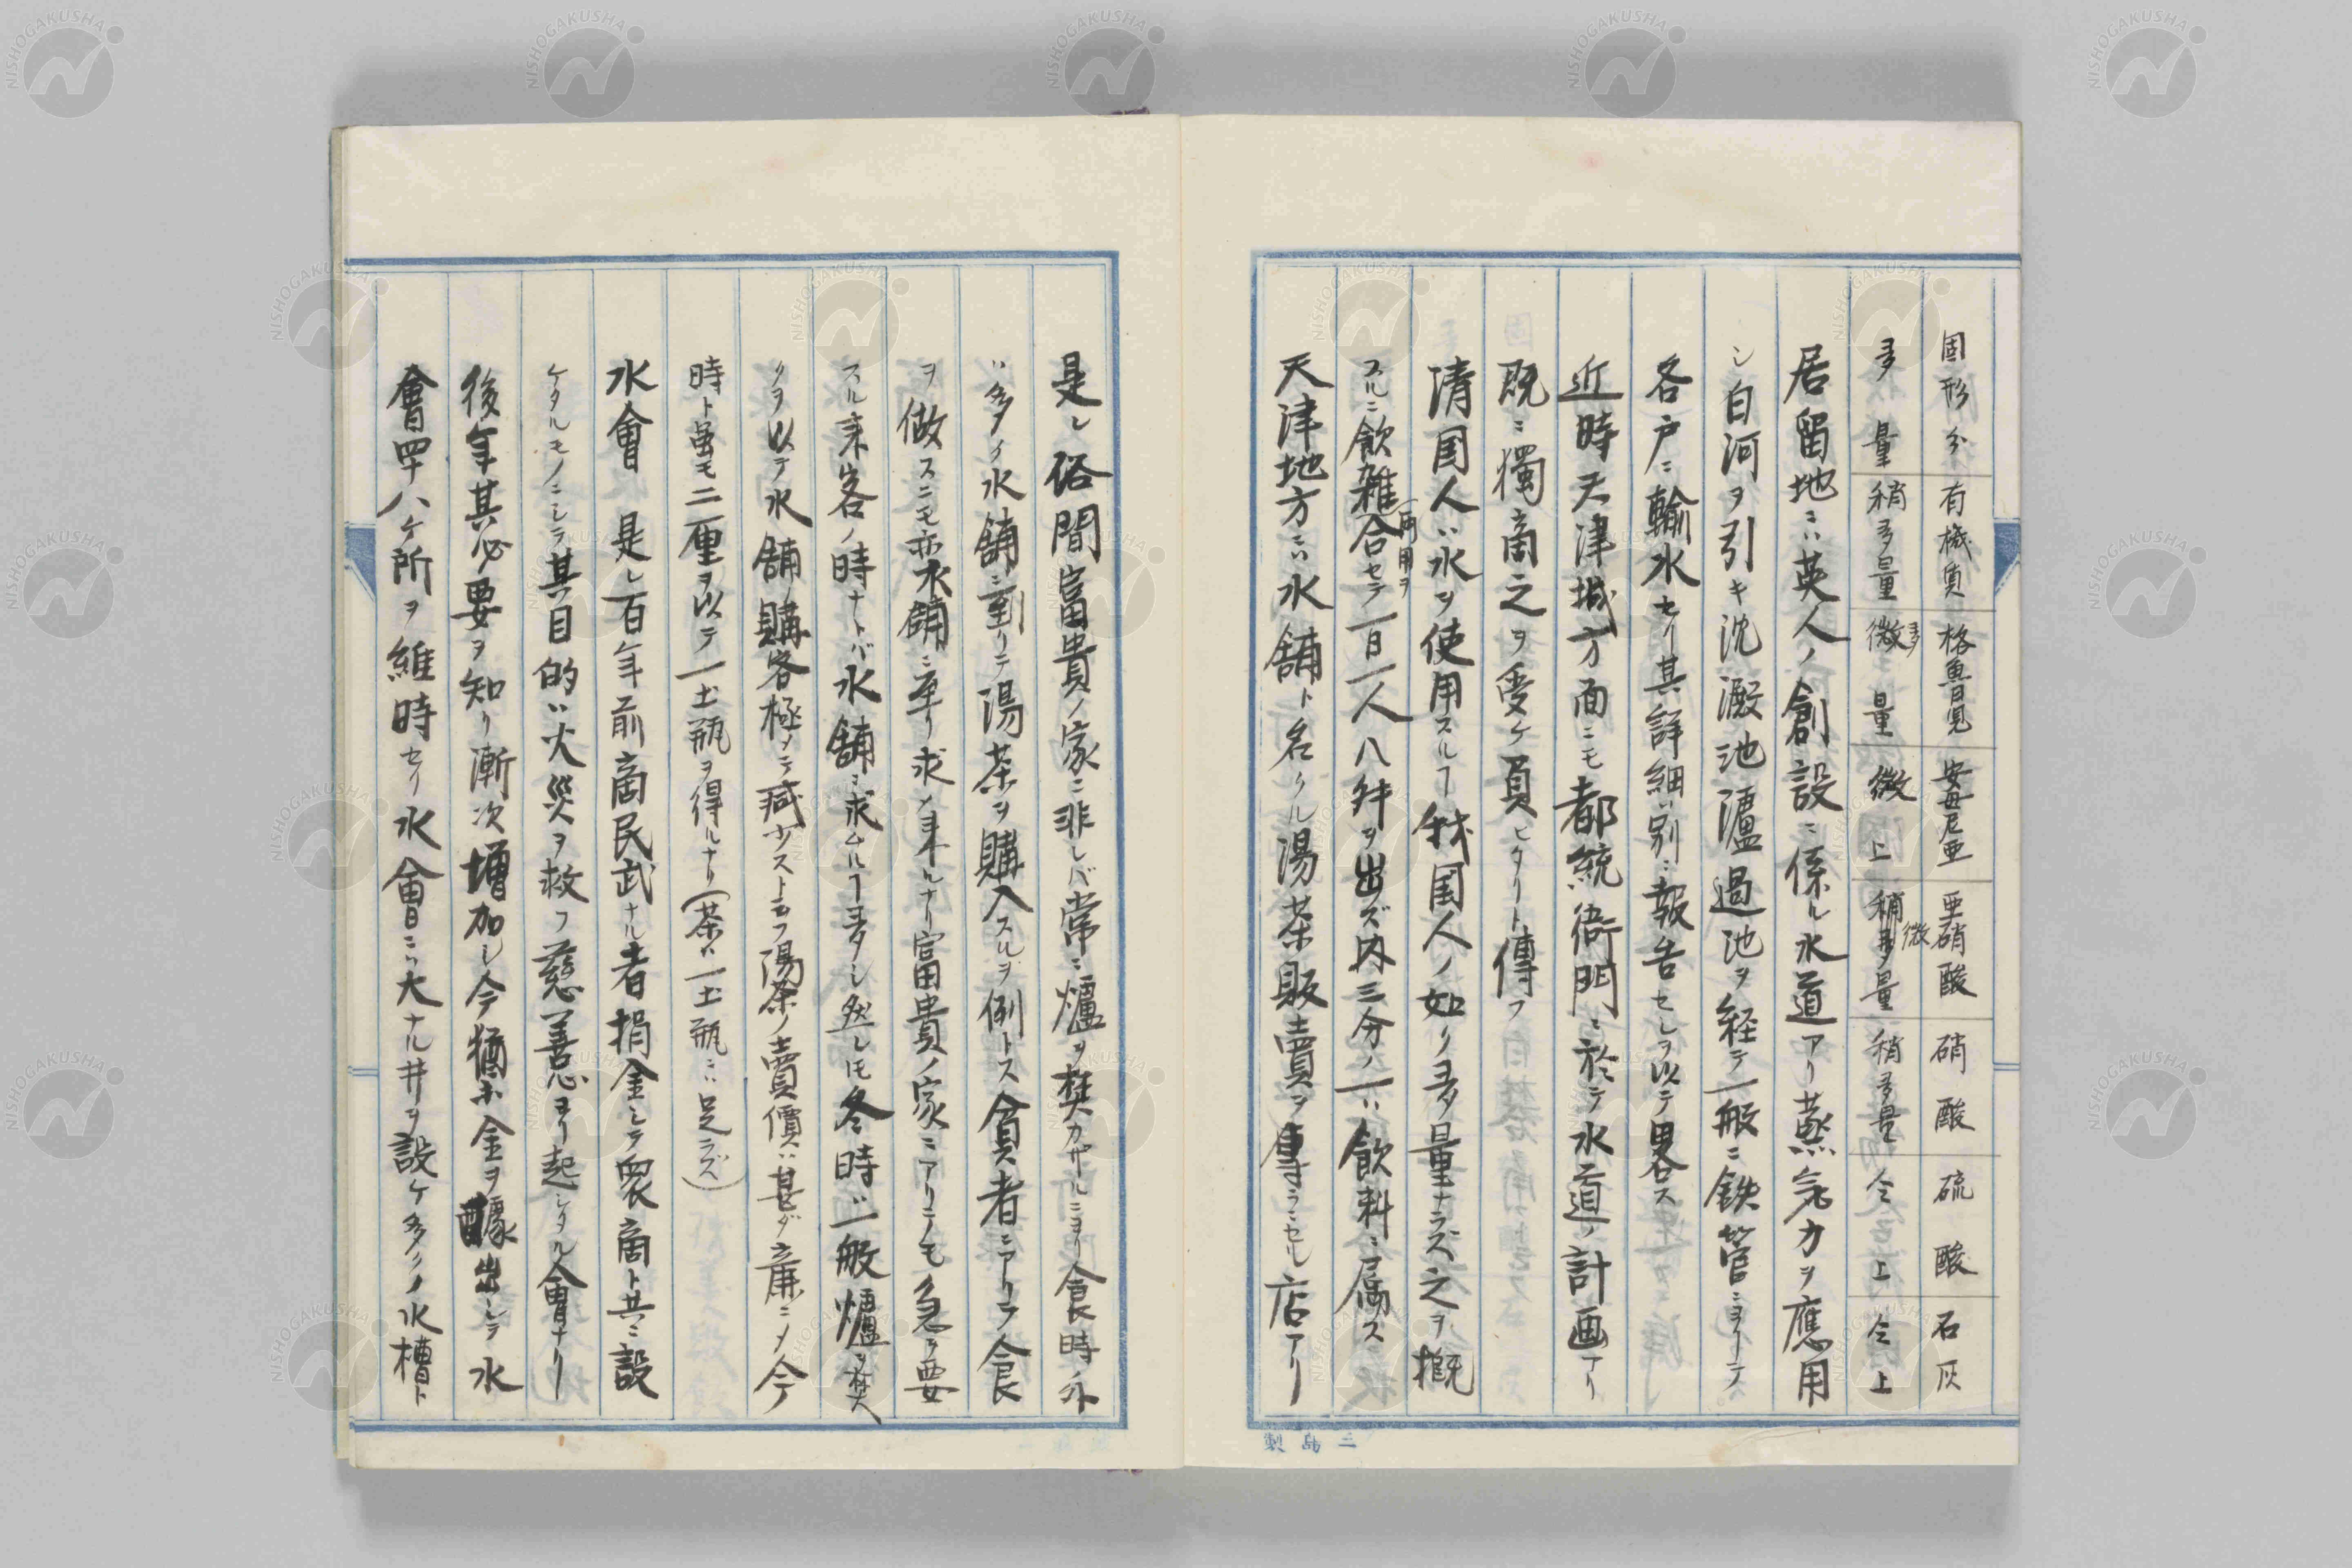 固形分 有機質 格魯兒 安母尼亜 亜硝酸 硝酸 硫酸 石灰
多量 稍多量 微量 微上 稍多量 微 稍多量 仝上 仝上
居留地ニハ英人ノ創設ニ係ル水道アリ蒸気力ヲ應用
シ白河ヲ引キ沈澱池瀘過池ヲ経テ一般ニ鉄管ニヨリテ
各戸ニ輸水セリ其詳細ハ別ニ報告セシヲ以テ畧ス
近時天津城方面ニモ都統衙門ニ於テ水道ノ計画アリ
既ニ獨商之ヲ受ケ負ヒタリト傳フ
清国人ハ水ヲ使用スルヿ我国人ノ如ク多量ナラズ之ヲ概
スルニ飲雑合セテ一日一人八舛ヲ出ズ内三分ノ一ハ飲料ニ属ス
両用ヲ
天津地方ニハ水舗ト名クル湯茶販賣ヲ專ラニセル店アリ
是レ俗間富貴ノ家ニ非レバ常ニ爐ヲ焚カザルニヨリ食時外
ハ多ク水舗ニ到リテ湯茶ヲ購入スルヲ例トス貧者ニアリテ食
ヲ做スニモ亦水舗ニ至リ求メ来ルナリ富貴ノ家ニアリテモ急ヲ要
スル来客ノ時ナトバ水舗ニ求ムルヿ多シ然レ𪜈冬時ハ一般爐ヲ焚
クヲ以テ水舗ノ購客極メテ減少スト云フ湯茶ノ賣價ハ甚ダ廉ニメ今
時ト雖モ二厘ヲ以テ一土瓶ヲ得ルナリ(茶ハ一土瓶ニハ足ラズ)
水會 是レ百年前商民武ナル者捐金シテ衆商ト共ニ設
ケタルモノニシテ其目的ハ火災ヲ救フ慈善心ヨリ起シタル會ナリ
後年其必要ヲ知リ漸次増加シ今猶ホ金ヲ醵出シテ水
會四十八ケ所ヲ維時セリ水會ニハ大ナル井ヲ設ケ多クノ水槽ト
製島三
NISHOGAKUSHA